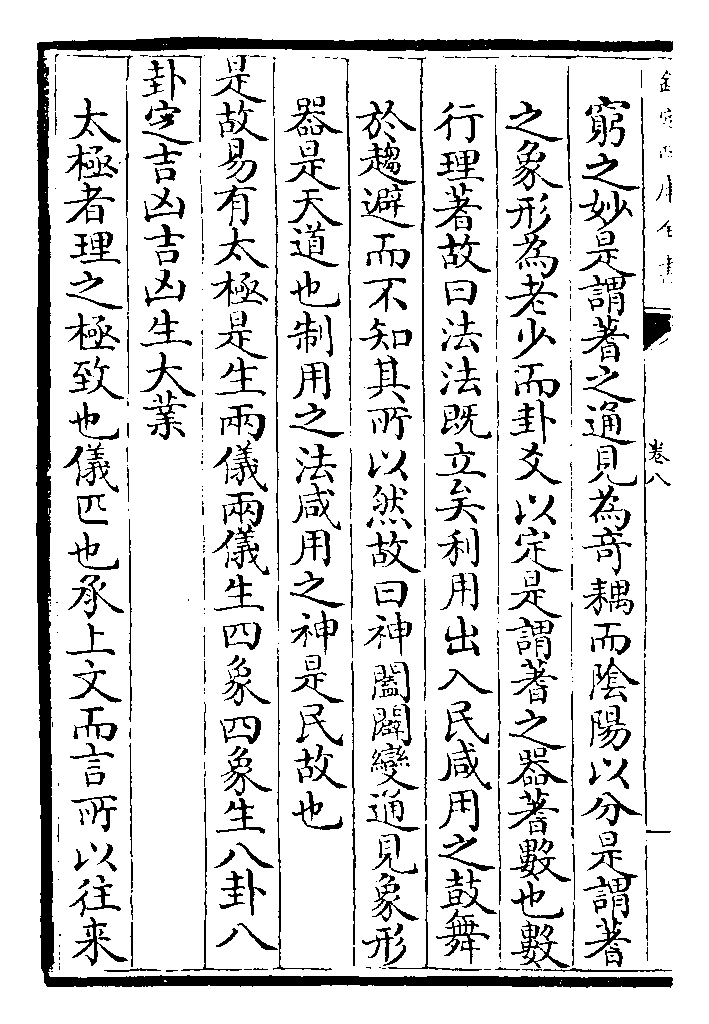 卷八
窮之妙是謂蓍之通見為竒耦而隂陽以分是謂蓍
之象形為老少而卦爻以定是謂蓍之器蓍數也數
行理著故曰法法既立矣利用出入民咸用之鼓舞
於趨避而不知其所以然故曰神闔闢變通見象形
器是天道也制用之法咸用之神是民故也
是故易有太極是生兩儀兩儀生四象四象生八卦八
卦定吉凶吉凶生大業
太極者理之極致也儀匹也承上文而言所以往来